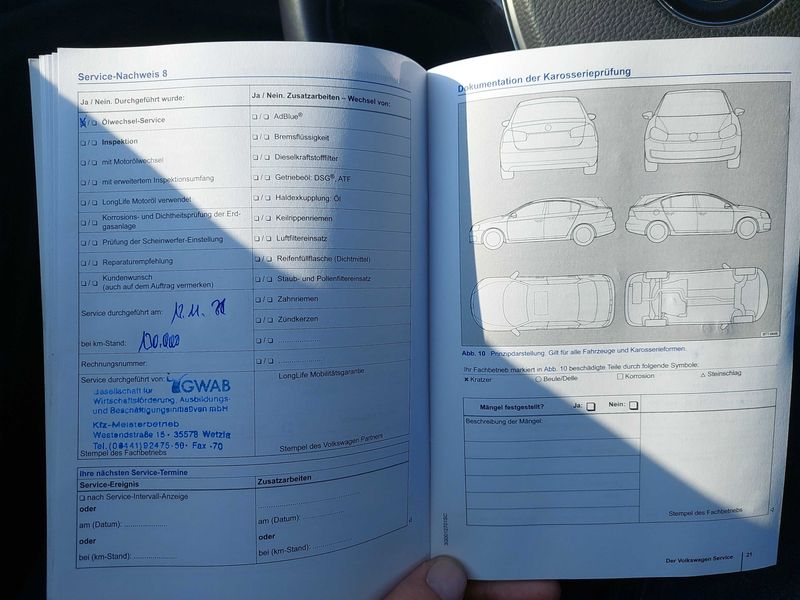 Service-Nachweis 8
Ja / Nein. Durchgeführt wurde:
❑ / ❑ Ölwechsel-Service
❑ / ❑ Inspektion
❑ / ❑ mit Motorölwechsel
❑ / ❑ mit erweitertem Inspektionsumfang
❑ / ❑ LongLife Motoröl verwendet
❑ / ❑ Korrosions- und Dichtheitsprüfung der Erd-
gasanlage
❑ / ❑ Prüfung der Scheinwerfer-Einstellung
❑ / ❑ Reparaturempfehlung
❑ / ❑ Kundenwunsch
(auch auf dem Auftrag vermerken)
Service durchgeführt am: 12.11.
bei km-Stand: 130.000
Rechnungsnummer:
Service durchgeführt von:
GWAB
Gesellschaft für
Wirtschaftsförderung, Ausbildungs-
und Beschäftigungsinitiativen mbH
Kfz-Meisterbetrieb
Westendstraße 15 • 35578 Wetzla
Tel. (06441) 92475-50 • Fax -70
Stempel des Fachbetriebs
Ja / Nein. Zusatzarbeiten – Wechsel von:
❑ / ❑ AdBlue®
❑ / ❑ Bremsflüssigkeit
❑ / ❑ Dieselkraftstofffilter
❑ / ❑ Getriebeöl: DSG®, ATF
❑ / ❑ Haldexkupplung: Öl
❑ / ❑ Keilrippenriemen
❑ / ❑ Luftfiltereinsatz
❑ / ❑ Reifenfüllflasche (Dichtmittel)
❑ / ❑ Staub- und Pollenfiltereinsatz
❑ / ❑ Zahnriemen
❑ / ❑ Zündkerzen
❑ / ❑ ....................
❑ / ❑ ....................
LongLife Mobilitätsgarantie
Stempel des Volkswagen Partners
Ihre nächsten Service-Termine
Service-Ereignis
❑ nach Service-Intervall-Anzeige
oder
am (Datum): ................
oder
bei (km-Stand): ................
Zusatzarbeiten
am (Datum): ................
oder
bei (km-Stand): ................
Dokumentation der Karosserieprüfung
Abb. 10 Prinzipdarstellung. Gilt für alle Fahrzeuge und Karosserieformen.
Ihr Fachbetrieb markiert in Abb. 10 beschädigte Teile durch folgende Symbole:
✕ Kratzer ○ Beule/Delle □ Korrosion △ Steinschlag
Mängel festgestellt? Ja: ❑ Nein: ❑
Beschreibung der Mängel:
Stempel des Fachbetriebs
Der Volkswagen Service 21